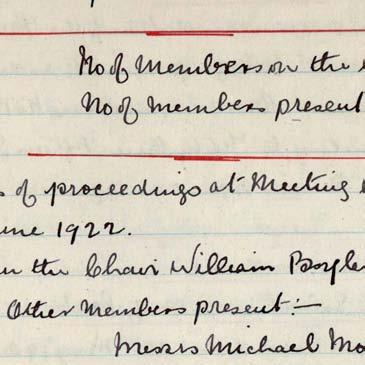 No of Members on the
No of members present
of proceedings at Meeting
une 1922.
in the Chair William Boyle
Other Members present:—
Messrs Michael Mo